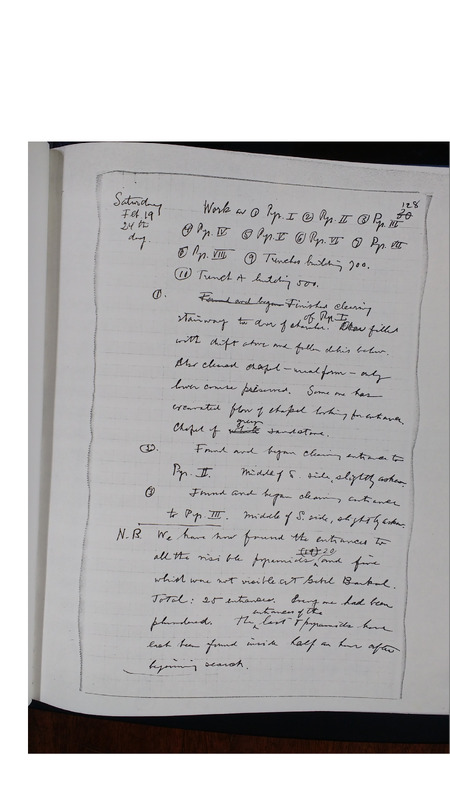 128
Saturday
Feb. 19
24th
day.
Work on ① Pyr. I ② Pyr. II ③ Pyr. III
④ Pyr. IV ⑤ Pyr. V ⑥ Pyr. VI ⑦ Pyr. VII
⑧ Pyr. VIII ⑨ Trenches building 700.
⑩ Trench A building 500.
①. Found and began Finished clearing
stairway to door of chamber of Pyr. I. filled
with drift above and fallen debris below.
Also cleared chapel – usual form – only
lower course preserved. Some one has
excavated floor of chapel looking for entrance.
Chapel of grey sandstone.
②. Found and began clearing entrance to
Pyr. II. Middle of S. side, slightly askew.
③ Found and began clearing entrance
to Pyr. III. Middle of S. side, slightly askew.
N.B. We have now found the entrances to
all the visible pyramids (19) 20 and five
which were not visible at Gebel Barkal.
Total: 25 entrances. Every one had been
plundered. The entrances of the last 8 pyramids have
each been found inside half an hour after
beginning search.